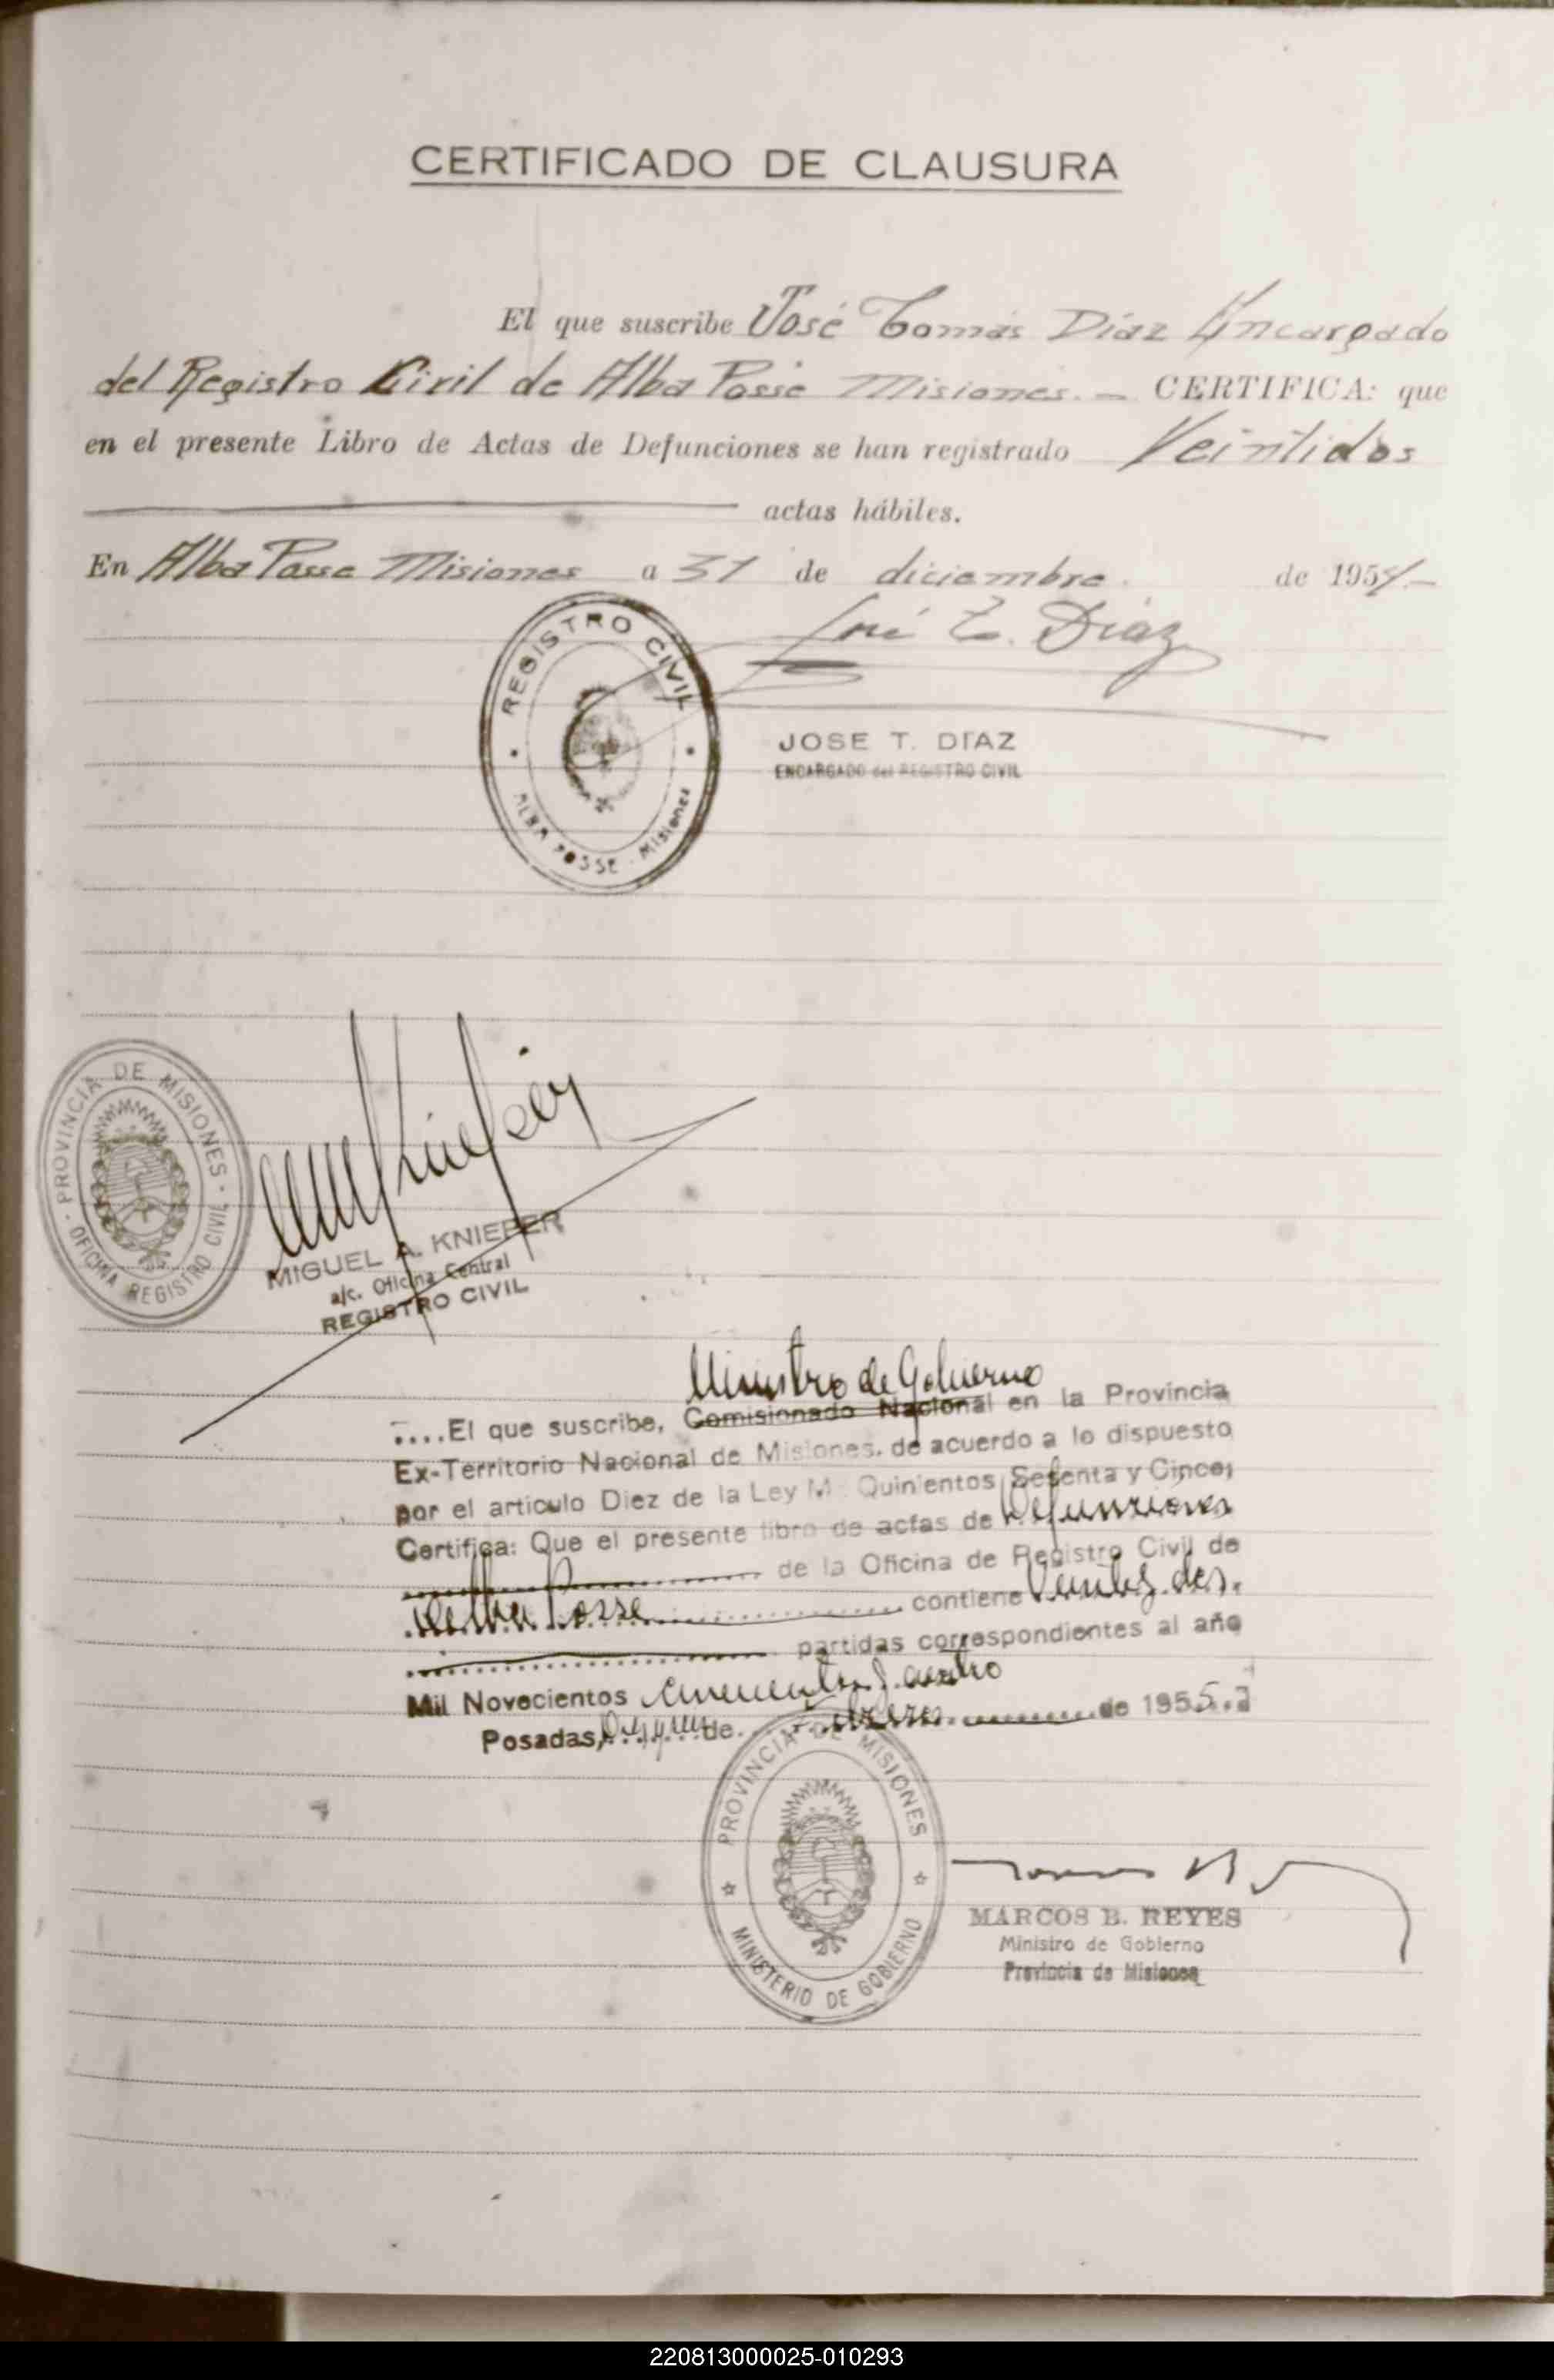 CERTIFICADO DE CLAUSURA
El que suscribe José Tomás Díaz Encargado
del Registro Civil de Alba Posse Misiones. — CERTIFICA: que
en el presente Libro de Actas de Defunciones se han registrado Veintidos
actas hábiles.
En Alba Posse Misiones a 31 de diciembre de 1954.—
José T. Díaz
REGISTRO CIVIL
ALBA POSSE - Misiones
JOSE T. DIAZ
ENCARGADO del REGISTRO CIVIL
PROVINCIA DE MISIONES
OFICINA REGISTRO CIVIL
MIGUEL A. KNIEFER
a/c. Oficina Central
REGISTRO CIVIL
Ministro de Gobierno
....El que suscribe, Comisionado Nacional en la Provincia
Ex-Territorio Nacional de Misiones. de acuerdo a lo dispuesto
por el articulo Diez de la Ley Mil Quinientos Sesenta y Cinco;
Certifica: Que el presente libro de actas de Defunciones
de la Oficina de Registro Civil de
Alba Posse contiene
partidas correspondientes al año
Mil Novecientos cincuenta y cuatro
Posadas, de de 1955.
PROVINCIA DE MISIONES
MINISTERIO DE GOBIERNO
MARCOS B. REYES
Ministro de Gobierno
Provincia de Misiones
220813000025-010293